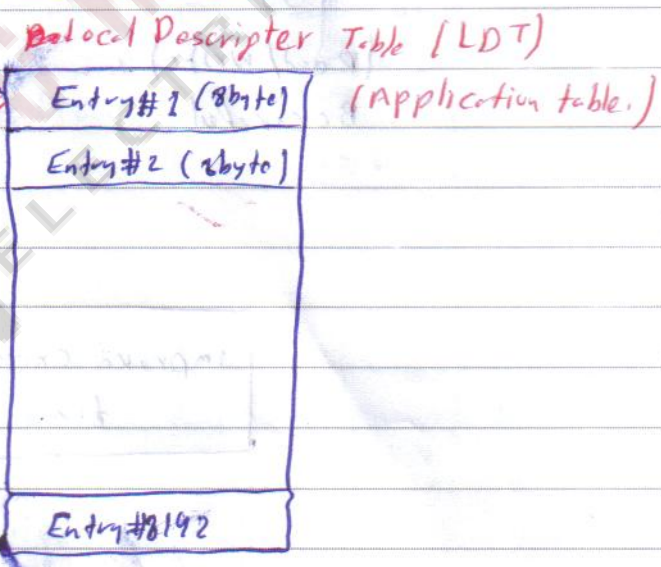 Local Descripter Table (LDT)
Entry#1 (8byte) (Application table.)
Entry#2 (8byte)
Entry#8192